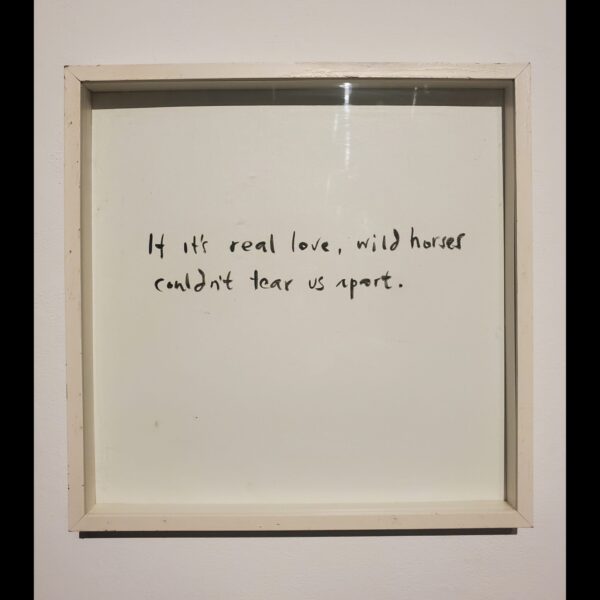 If it's real love, wild horses
couldn't tear us apart.